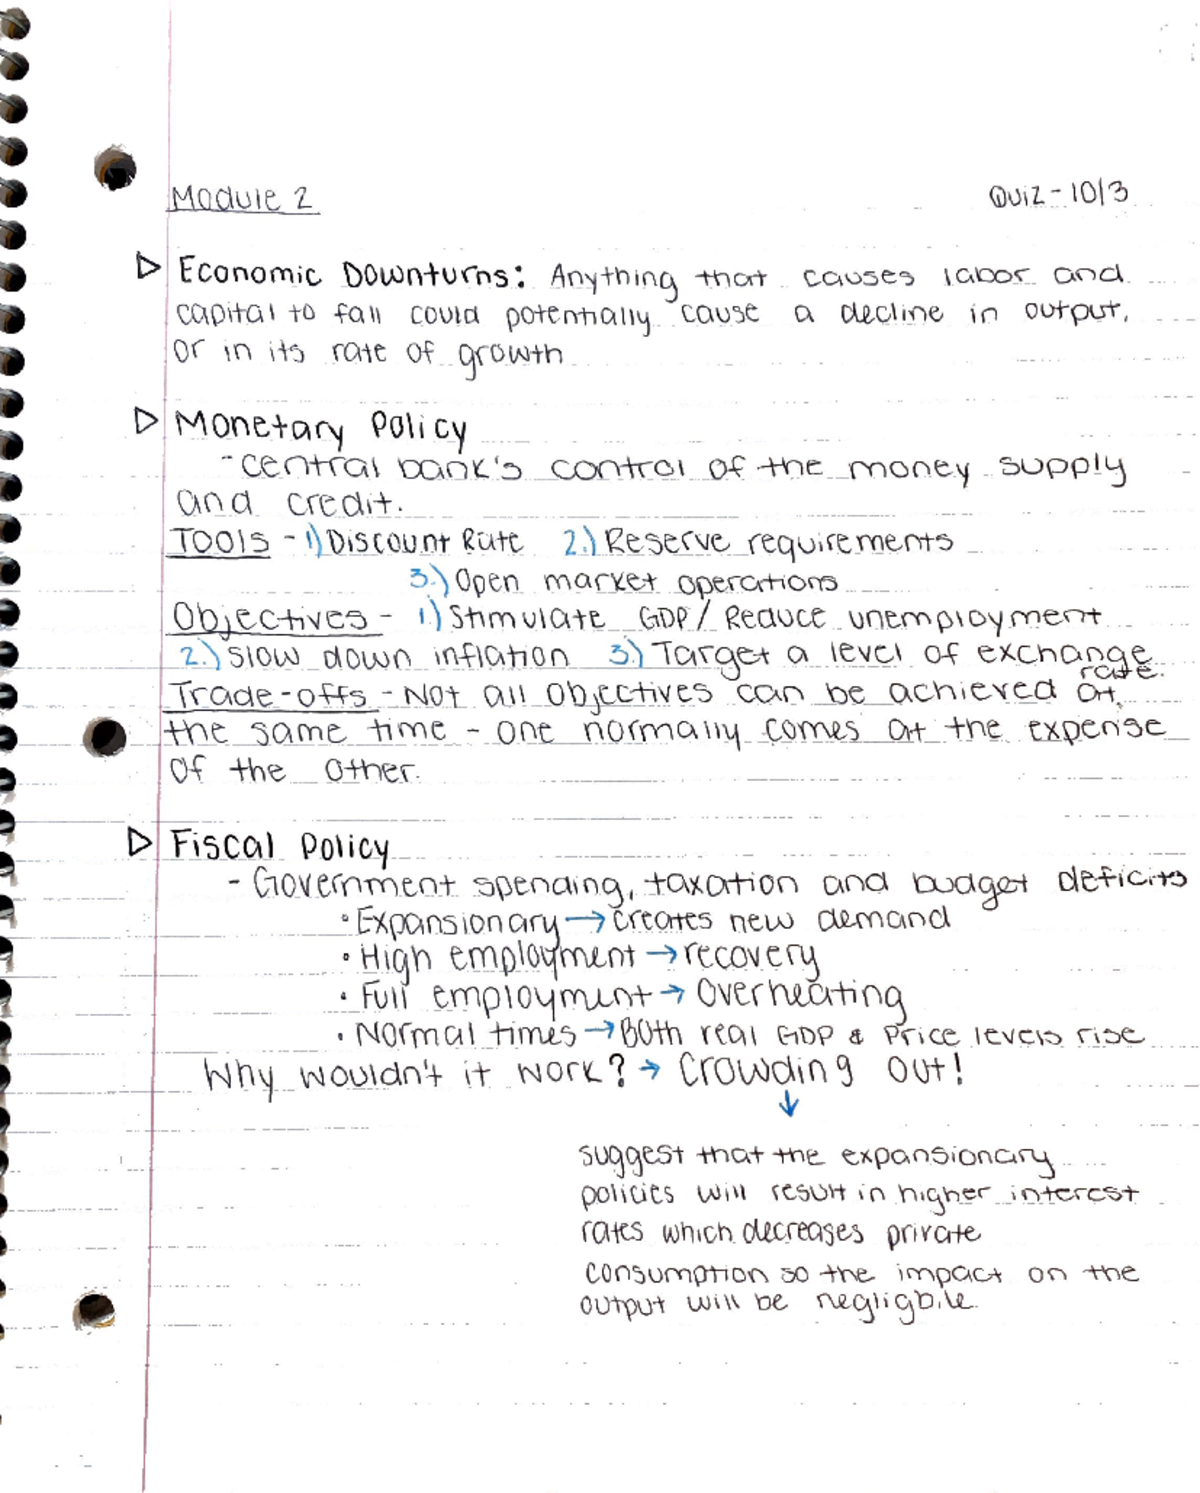 Module 2
Quiz - 10/3
Economic Downturns: Anything that causes labor and
capital to fall could potentially cause a decline in output,
or in its rate of growth
Monetary Policy
- central bank's control of the money supply
and credit.
Tools - 1) Discount Rate 2.) Reserve requirements
3.) Open market operations
Objectives - 1.) Stimulate GDP/ Reduce unemployment
2.) Slow down inflation 3.) Target a level of exchange
rate.
Trade-offs - Not all objectives can be achieved at
the same time - one normally comes at the expense
of the other.
Fiscal Policy
- Government spending, taxation and budget deficits
• Expansionary → creates new demand
• High employment → recovery
• Full employment → Overheating
• Normal times → Both real GDP & Price levels rise
Why wouldn't it work? → Crowding Out!
↓
suggest that the expansionary
policies will result in higher interest
rates which decreases private
consumption so the impact on the
output will be negligbile.